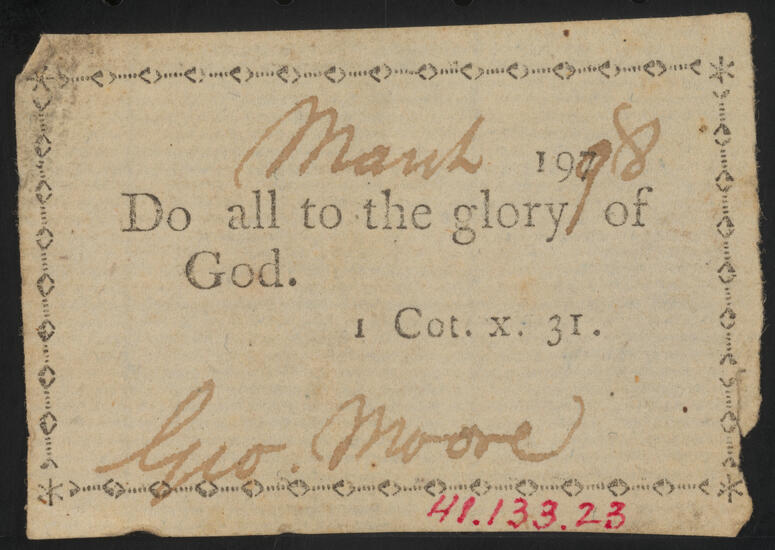 March 1998
Do all to the glory of
God.
1 Cot. x. 31.
Geo. Moore
41.133.23